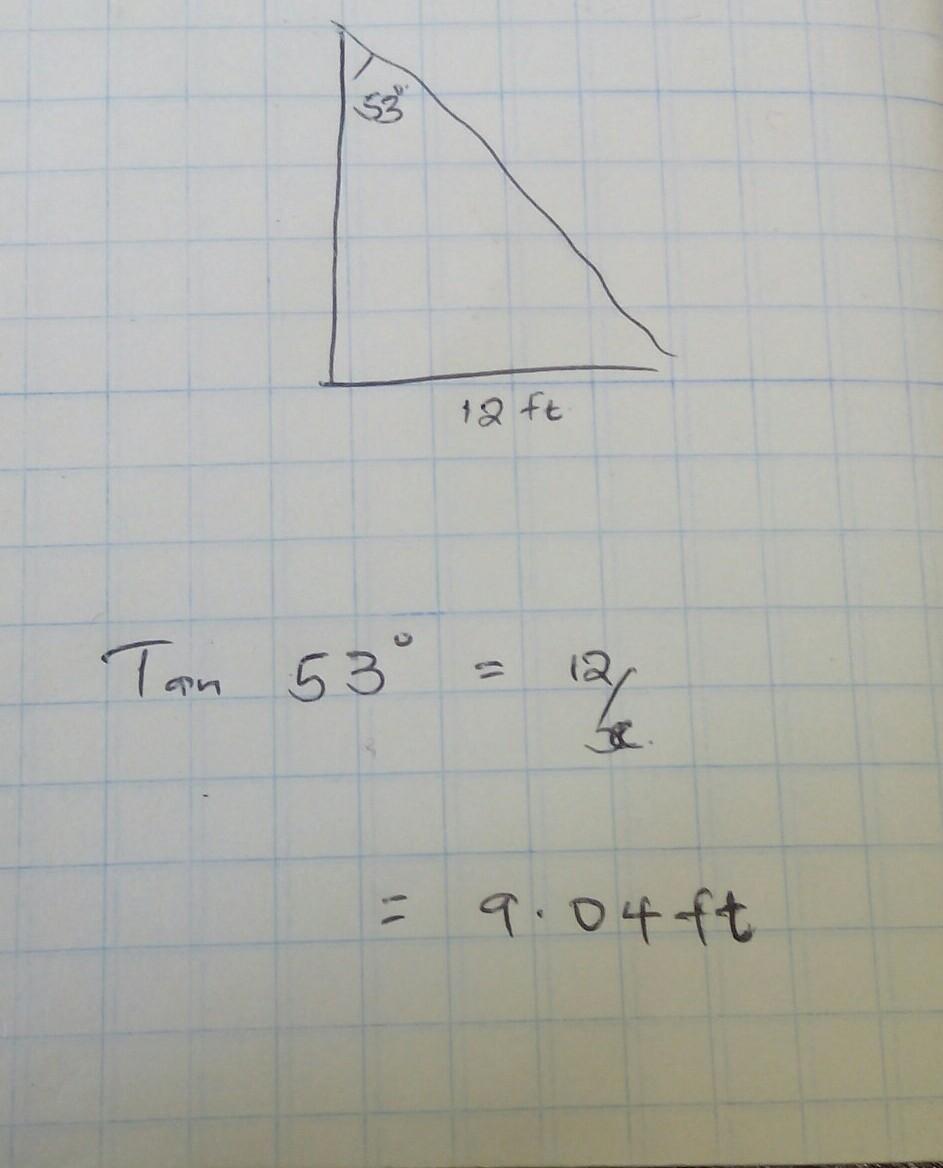 53°
12 ft
Tan 53° = 12/x
= 9.04 ft